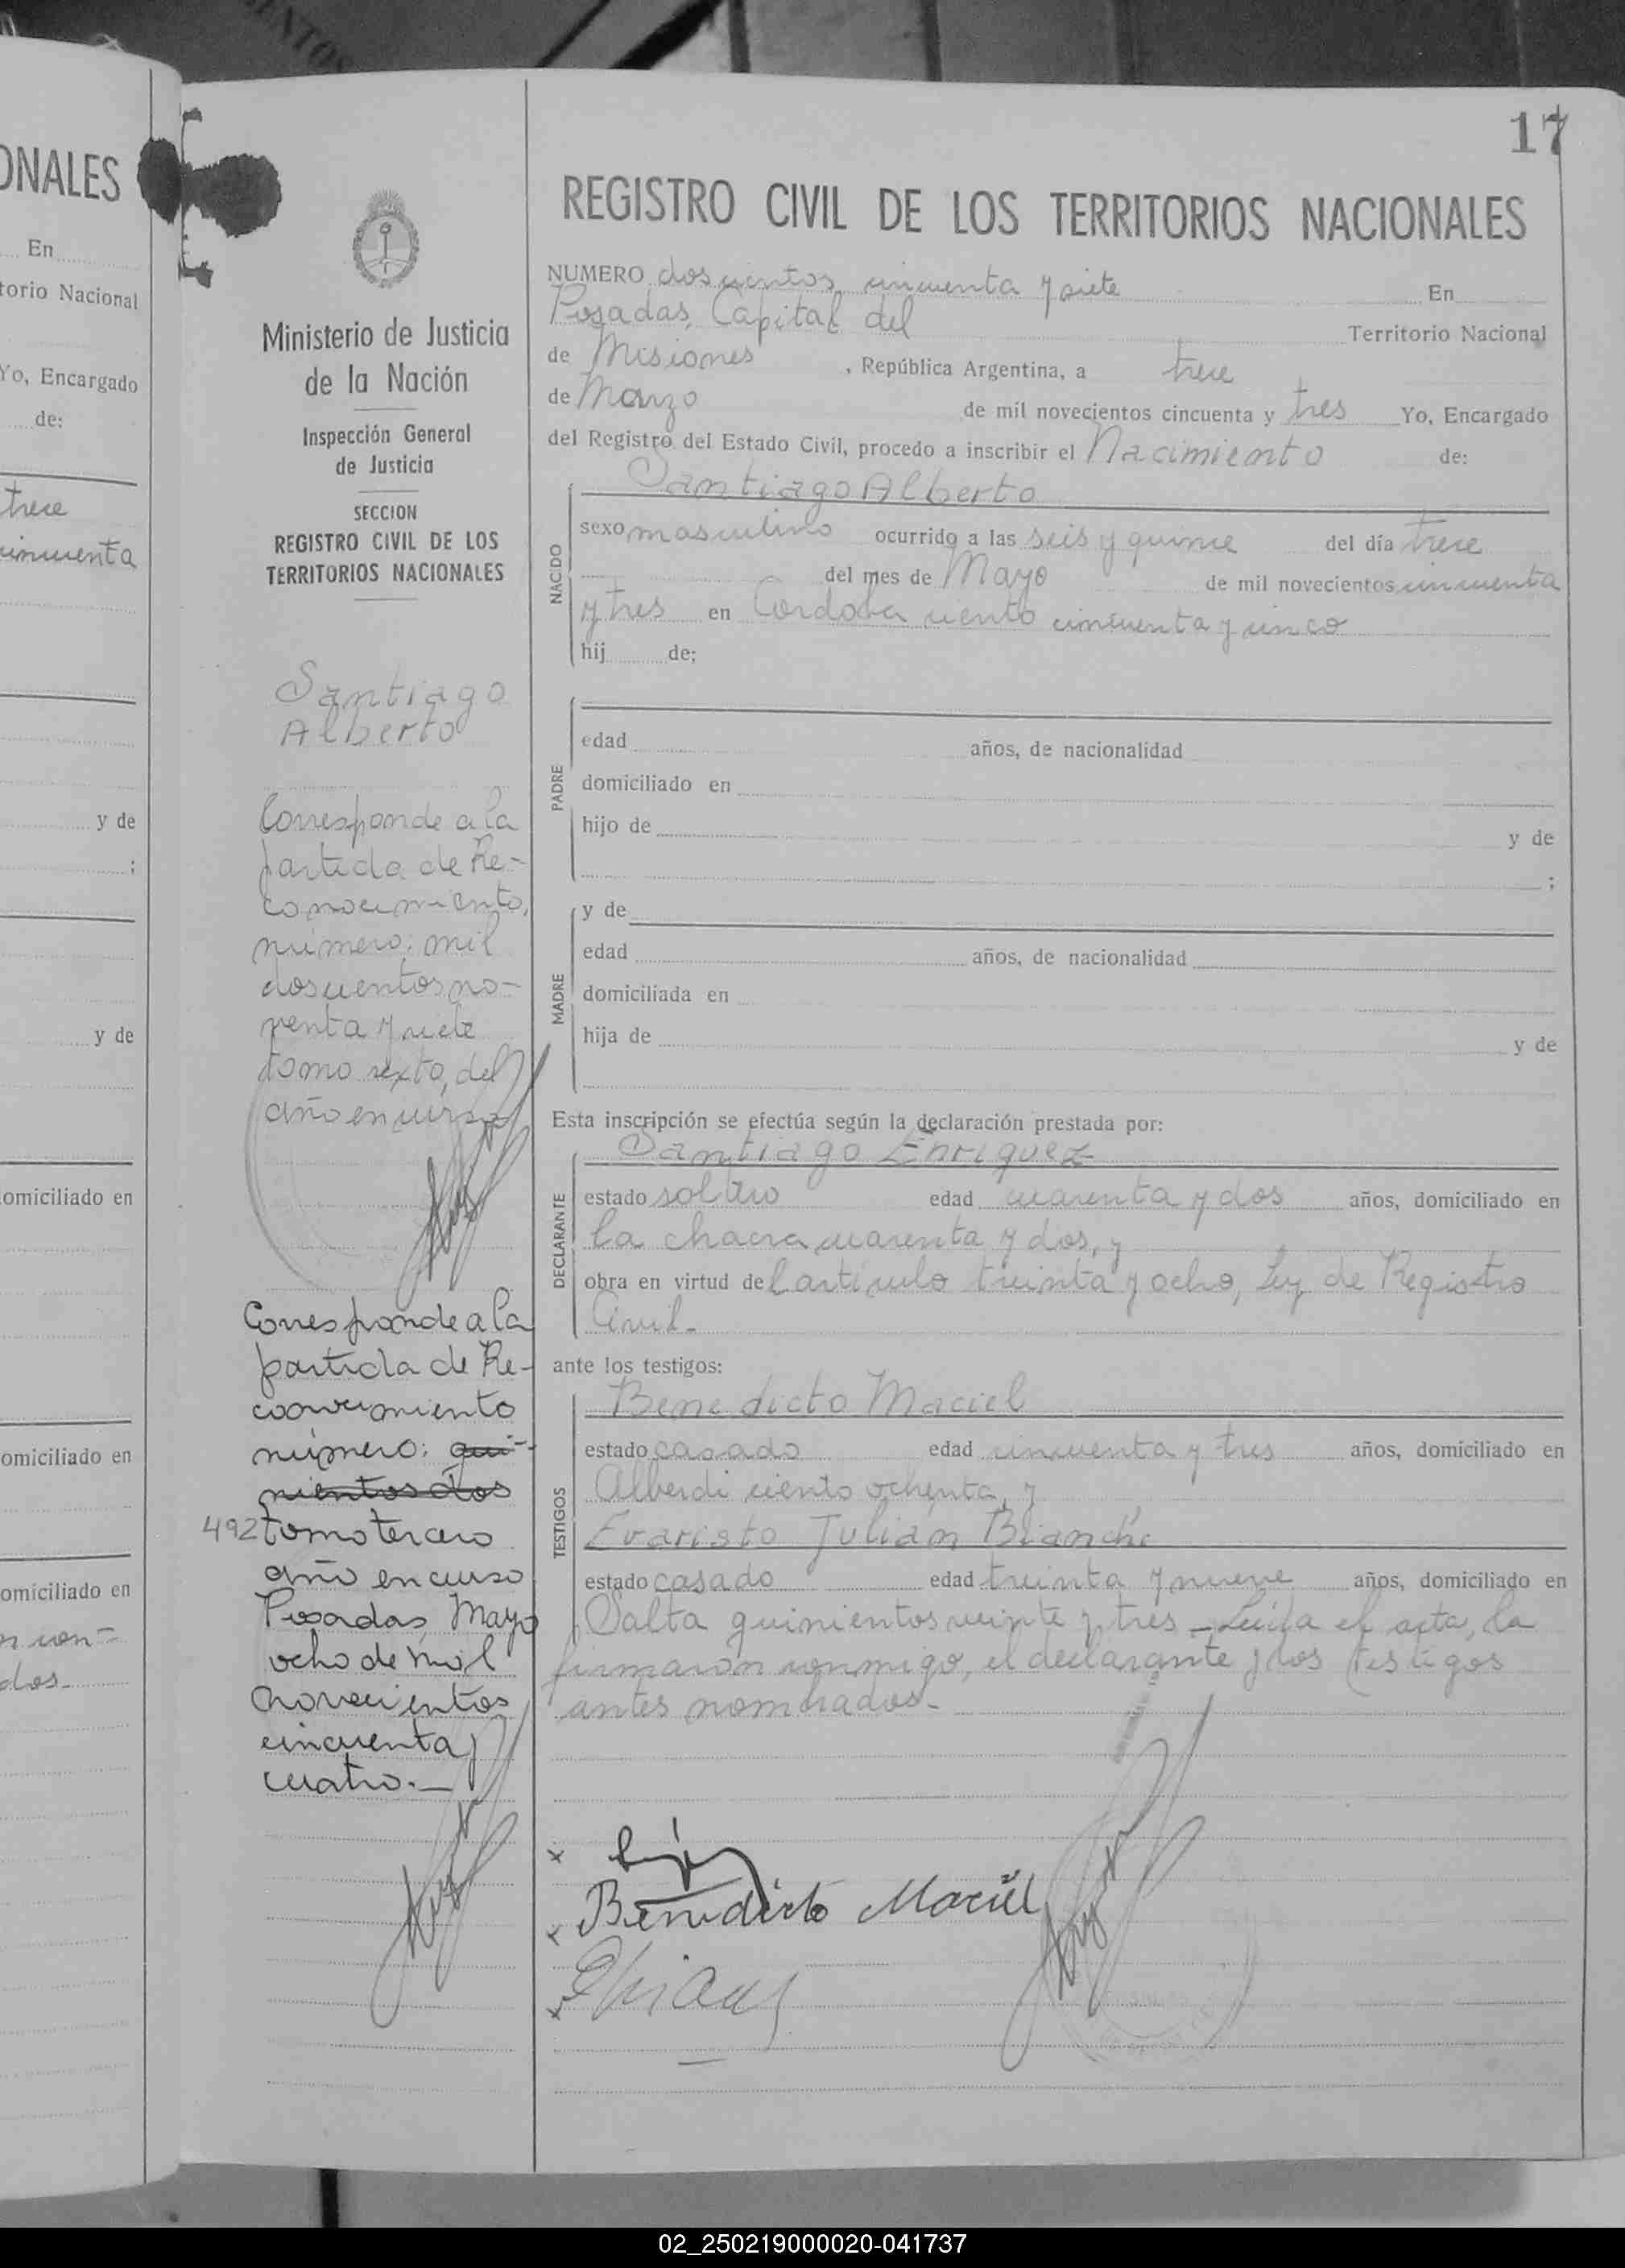 ENTOS
ONALES
En
torio Nacional
Yo, Encargado
de:
trece
cincuenta
y de
;
y de
omiciliado en
omiciliado en
omiciliado en
n con-
dos.
Ministerio de Justicia
de la Nación
Inspección General
de Justicia
SECCION
REGISTRO CIVIL DE LOS
TERRITORIOS NACIONALES
Santiago
Alberto
Corresponde a la
partida de Re-
conocimiento,
número: mil
doscientos no-
venta y siete
tomo sexto, del
año en curso
Corresponde a la
partida de Re-
conocimiento
número: qui-
nientos dos
492 tomo tercero
año en curso
Posadas, Mayo
ocho de mil
novecientos
cincuenta y
cuatro.-
17
REGISTRO CIVIL DE LOS TERRITORIOS NACIONALES
NUMERO doscientos cincuenta y siete En
Posadas, Capital del Territorio Nacional
de Misiones, República Argentina, a trece
de Marzo de mil novecientos cincuenta y tres Yo, Encargado
del Registro del Estado Civil, procedo a inscribir el Nacimiento de:
NACIDO
Santiago Alberto
sexo masculino ocurrido a las seis y quince del día trece
del mes de Mayo de mil novecientos cincuenta
y tres en Cordoba ciento cincuenta y cinco
hij de;
PADRE
edad años, de nacionalidad
domiciliado en
hijo de y de
;
MADRE
y de
edad años, de nacionalidad
domiciliada en
hija de y de
Esta inscripción se efectúa según la declaración prestada por:
DECLARANTE
Santiago Enriquez
estado soltero edad cuarenta y dos años, domiciliado en
la chacra cuarenta y dos, y
obra en virtud del articulo treinta y ocho, Ley de Registro
Civil.-
ante los testigos:
TESTIGOS
Benedicto Maciel
estado casado edad cincuenta y tres años, domiciliado en
Alberdi ciento ochenta, y
Evaristo Julián Bianchi
estado casado edad treinta y nueve años, domiciliado en
Salta quinientos veinte y tres.- Leída el acta, la
firmaron conmigo, el declarante y los testigos
antes nombrados.-
Benedicto Maciel
02_250219000020-041737